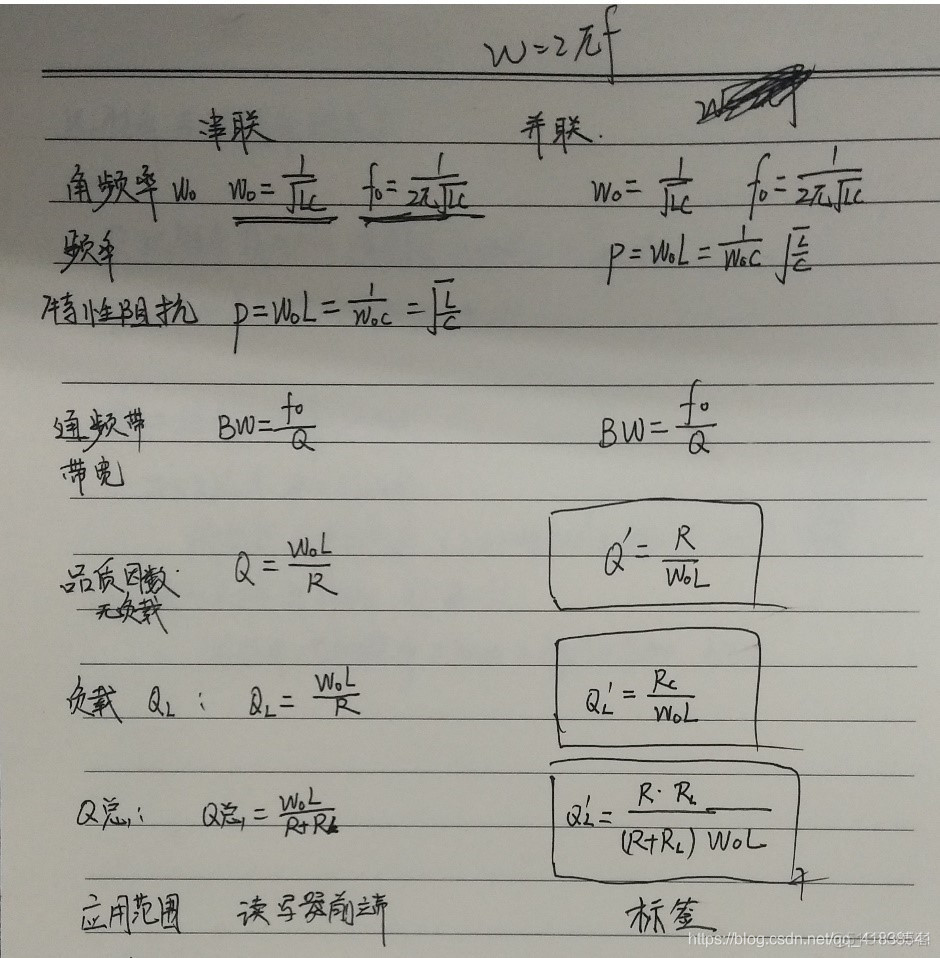 w=2πf
串联 并联.
角频率 w₀ w₀=1/√LC f₀=1/2π√LC w₀=1/√LC f₀=1/2π√LC
频率 ρ=w₀L=1/w₀c √L/C
特性阻抗 ρ=w₀L=1/w₀c=√L/C
通频带 BW=f₀/Q BW=f₀/Q
带宽
品质因数 Q=w₀L/R Q′=R/w₀L
无负载
负载 Q_L: Q_L=w₀L/R Q_L′=R_L/w₀L
Q总: Q总=w₀L/R+R_L Q_L′=R·R_L/(R+R_L)w₀L
应用范围 读写器前端 标签
https://blog.csdn.net/qq_41839541